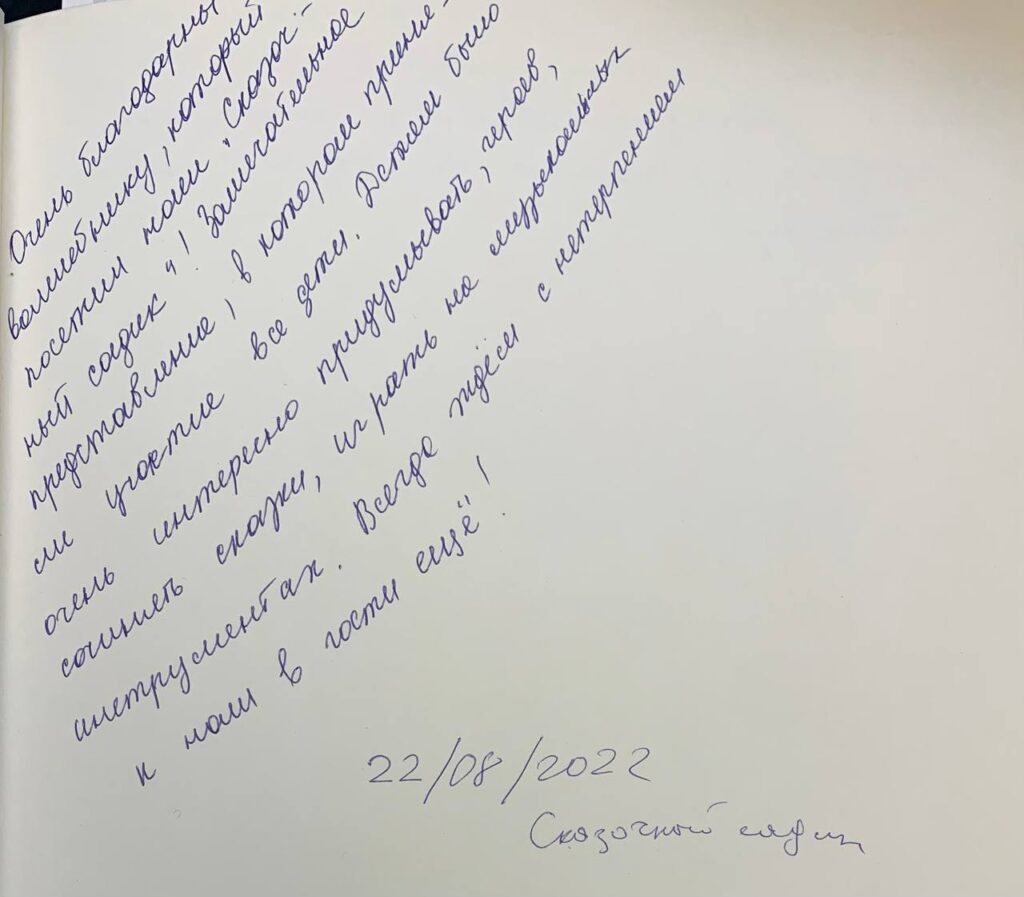 Очень благодарны
волшебнику, который
посетил наш „Сказоч-
ный садик"! Замечательное
представление, в котором приня-
ли участие все дети. Детям было
очень интересно придумывать, героев,
сочинять сказки, играть на музыкальных
инструментах. Всегда ждём с нетерпением
к нам в гости ещё!
22/08/2022
Сказочный садик